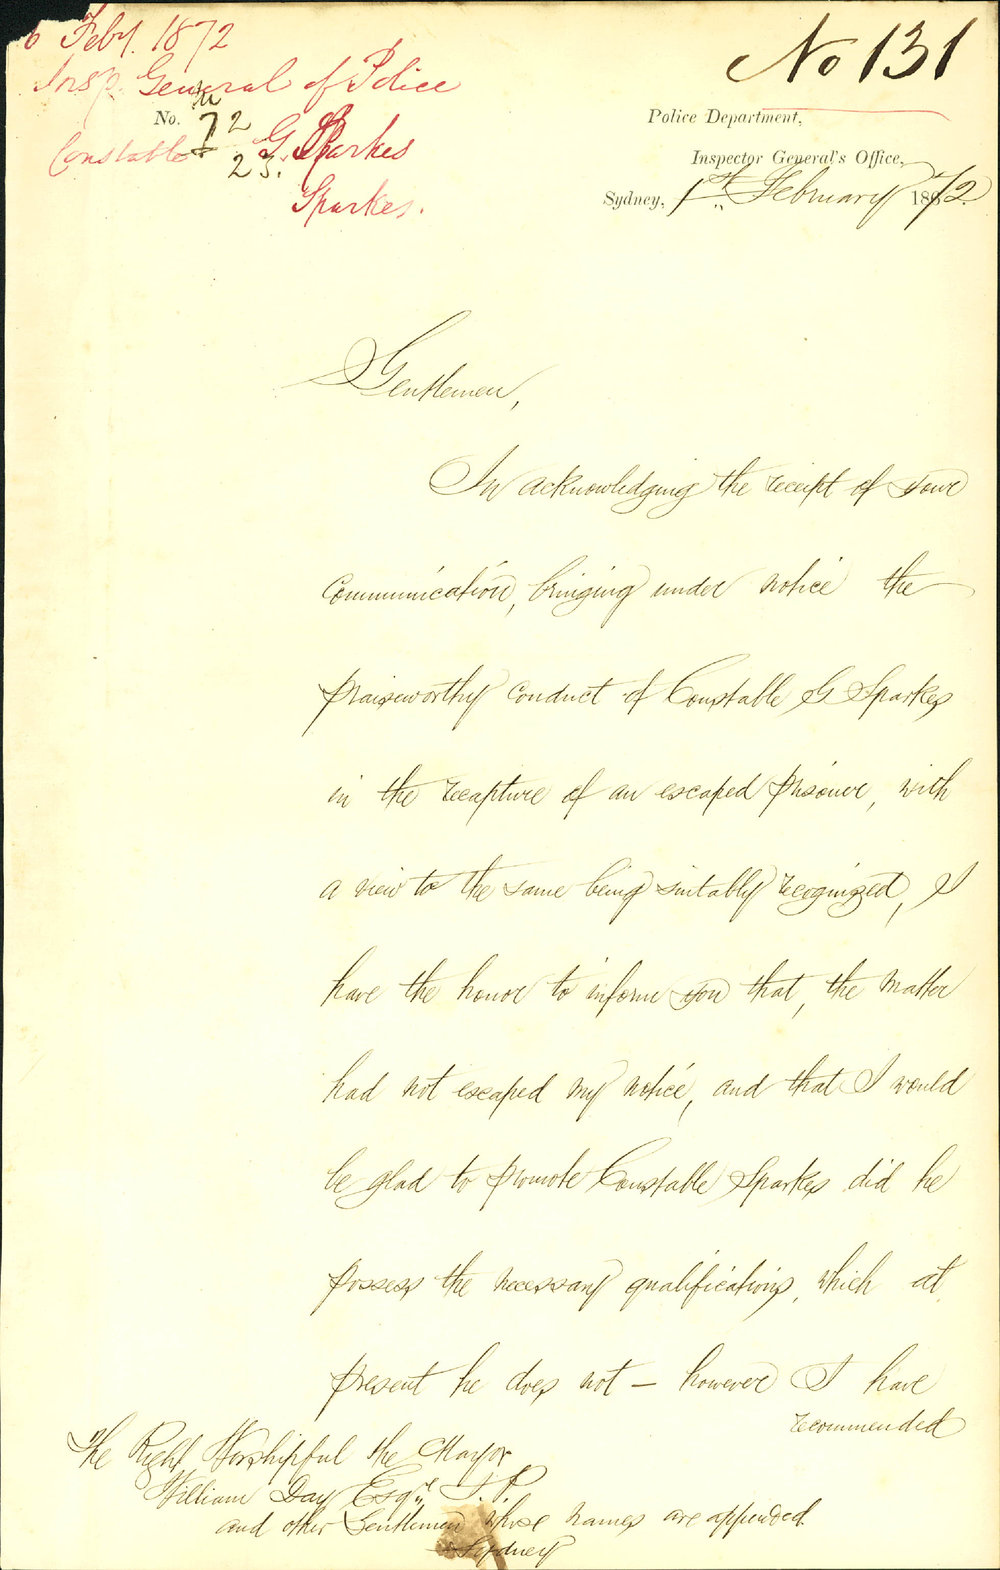 6 Feby. 1872
Insp. General of Police
Constable G. Sparkes
Sparkes.
No. 72
23.
No 131
Police Department,
Inspector General's Office,
Sydney, 1st February 1872.
Gentlemen,
In acknowledging the receipt of your
communication, bringing under notice the
praiseworthy conduct of Constable G Sparkes
in the recapture of an escaped prisoner, with
a view to the same being suitably recognized, I
have the honor to inform you that, the matter
had not escaped my notice, and that I would
be glad to promote Constable Sparkes did he
possess the necessary qualifications, which at
present he does not — however I have
recommended
The Right Worshipful the Mayor
William Day Esqre. J.P.
and other Gentlemen whose names are appended.
Sydney